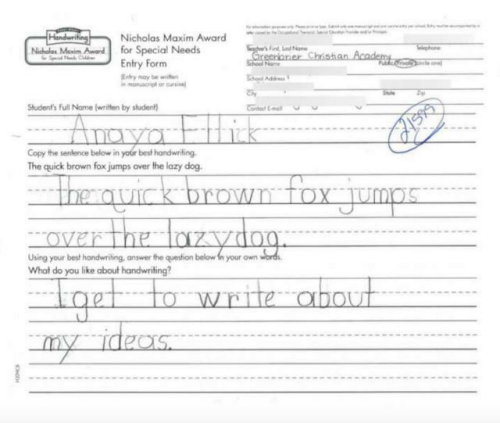 Handwriting
Nicholas Maxim Award
for Special Needs Children
Nicholas Maxim Award
for Special Needs
Entry Form
(Entry may be written
in manuscript or cursive)
Teacher's First, Last Name
Telephone
Greenbrier Christian Academy
School Name
Public/Private (circle one)
School Address
City
State
Zip
Contact E-mail
21599
Student's Full Name (written by student)
Anaya Ellick
Copy the sentence below in your best handwriting.
The quick brown fox jumps over the lazy dog.
The quick brown fox jumps
over the lazy dog.
Using your best handwriting, answer the question below in your own words.
What do you like about handwriting?
I get to write about
my ideas.